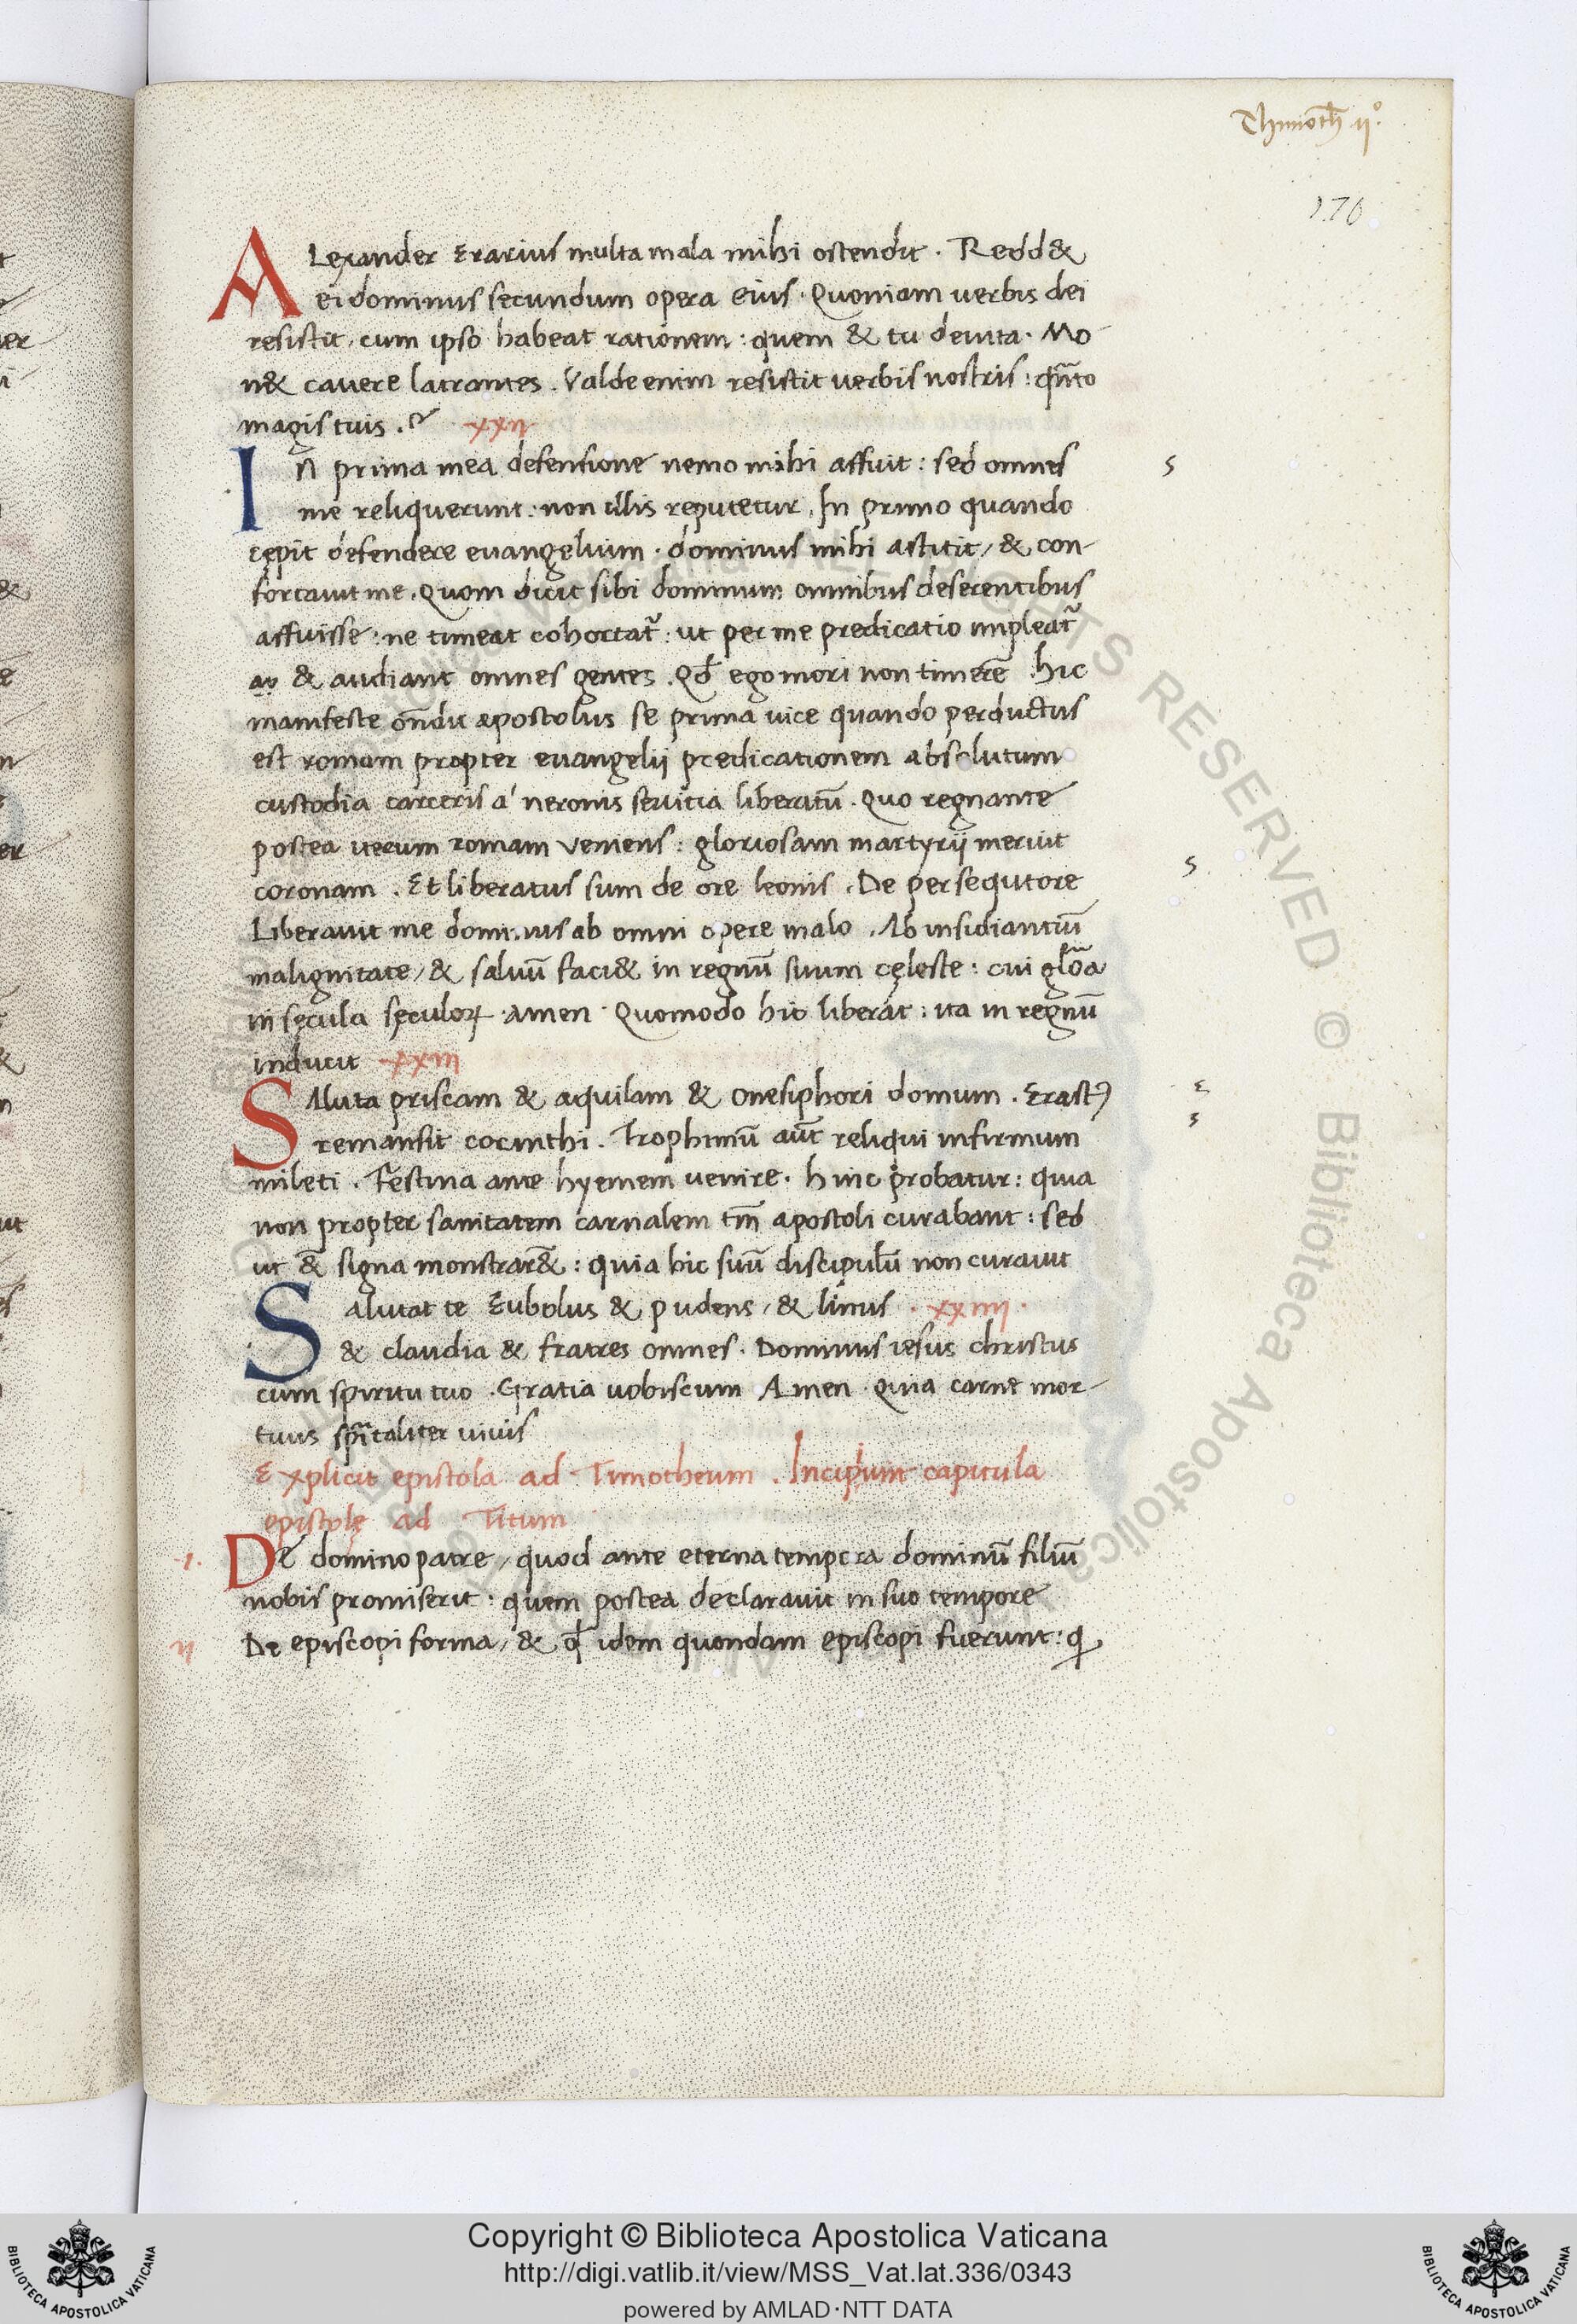 Thimoth ij°
170
Alexander Erarius multa mala mihi ostendit . Redd&
ei dominus secundum opera eius . Quoniam uerbis dei
resistit, cum ipso habeat rationem : quem & tu deuita . Mo-
n& cauere latrantes . Valde enim resistit uerbis nostris : qñto
magis tuis . xxii
In prima mea defensione nemo mihi affuit : sed omnes
me reliquerunt : non illis reputetur . In primo quando
cępit defendere euangelium . dominus mihi astitit, & con-
fortauit me . Quom dicit sibi dominum omnibus deserentibus
affuisse : ne timeat cohortat᷑ : ut per me predicatio impleat᷑
& audiant omnes gentes . Qđ ego mori non timerē . hic
manifeste on̄dit apostolus se prima uice quando perductus
est romam propter euangelij predicationem absolutum
custodia carceris a' neronis seuitia liberatū . Quo regnante
postea iterum romam veniens : gloriosam martyrij meruit
coronam . Et liberatus sum de ore leonis . De persequtore
Liberauit me dominus ab omni opere malo . Ab insidiantiū
malignitate, & saluū faci& in regnū suum cęleste : cui glōa
in sęcula sęculoꝝ . amen . Quomodo hic liberat : ita in regnū
inducit xxiii
Saluta priscam & aquilam & onesiphori domum . Erastꝰ
remansit corinthi . Trophimū aūt reliqui infirmum
mileti . Festina ante hyemem uenire . hinc probatur : quia
non propter sanitatem carnalem tm̄ apostoli curabant : sed
ut & signa monstrar& : quia hic suū discipulū non curauit
Salutat te Eubolus & pudens, & linus . xxiiii .
& claudia & fratres omnes . Dominus iesus christus
cum spiritu tuo . Gratia uobiscum Amen . Quia carne mor-
tuus spūitaliter uiuis
Explicit epistola ad Timotheum . Incipiunt capitula
epistolę ad Titum
.i. De domino patre, quod ante eterna tempora dominū filiū
nobis promiserit : quem postea declarauit in suo tempore
ii De episcopi forma, & qđ idem quondam episcopi fuerunt : q
Copyright © Biblioteca Apostolica Vaticana
http://digi.vatlib.it/view/MSS_Vat.lat.336/0343
powered by AMLAD·NTT DATA
BIBLIOTECA APOSTOLICA VATICANA
BIBLIOTECA APOSTOLICA VATICANA